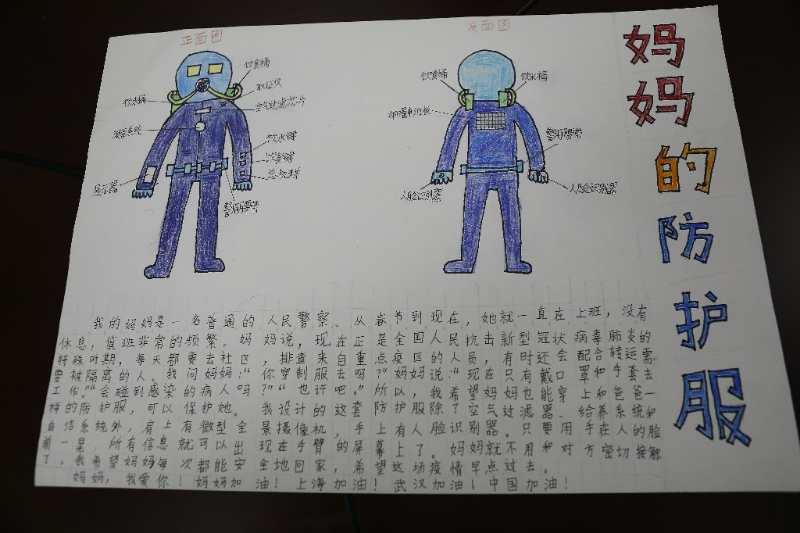 妈妈的防护服
正面图
反面图
饮食桶
饮水桶
显示器
饮食桶
饮水桶
人脸识别器
人脸识别器
我的妈妈是一名普通的人民警察。从春节到现在，她就一直在上班，没有
休息，值班非常的频繁。妈妈说，现在正是全国人民抗击新型冠状病毒肺炎的
特殊时期，每天都要去社区，排查来自重点疫区的人员，有时还会配合转运需
要被隔离的人。我问妈妈：“你穿制服去吗？”妈妈说：“现在只有戴口罩和手套去
工作。”“会碰到感染的病人吗？”“也许吧。”所以，我希望妈妈也能穿上和爸爸一
样的防护服，可以保护她。我设计的这套防护服除了空气过滤器、给养系统和
通信系统外，肩上有微型全景摄像机，手上有人脸识别器。只要用手在人的脸
前一晃，所有信息就可以出现在手臂的屏幕上了。妈妈就不用和对方密切接触
了。我希望妈妈每次都能安全地回家，希望这场疫情早点过去。
妈妈，我爱你！妈妈加油！上海加油！武汉加油！中国加油！